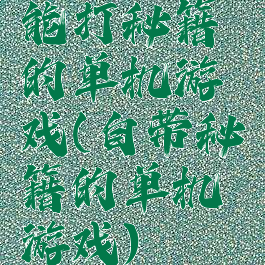 能打秘籍
的单机游
戏(自带秘
籍的单机
游戏)